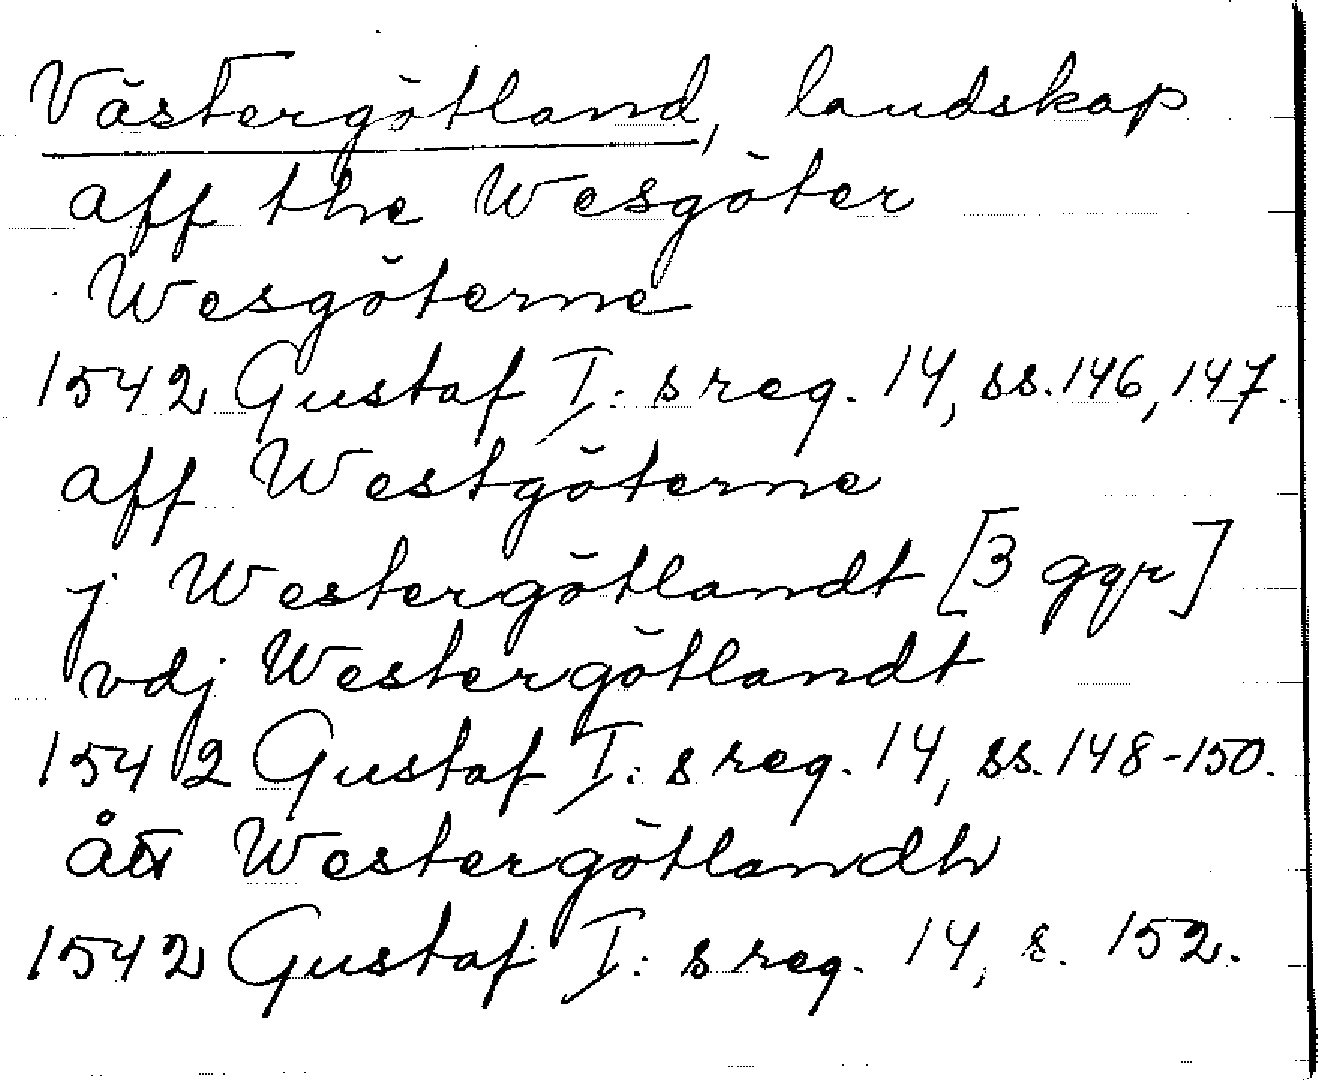 Västergötland, landskap
aff the Wesgöter
Wesgöterne
1542 Gustaf I:s reg. 14, ss. 146, 147.
aff Westgöterne
j Westergötlandt [3 ggr]
vdj Westergötlandt
1542 Gustaf I:s reg. 14, ss. 148-150.
ått Westergötlandh
1542 Gustaf I:s reg. 14, s. 152.